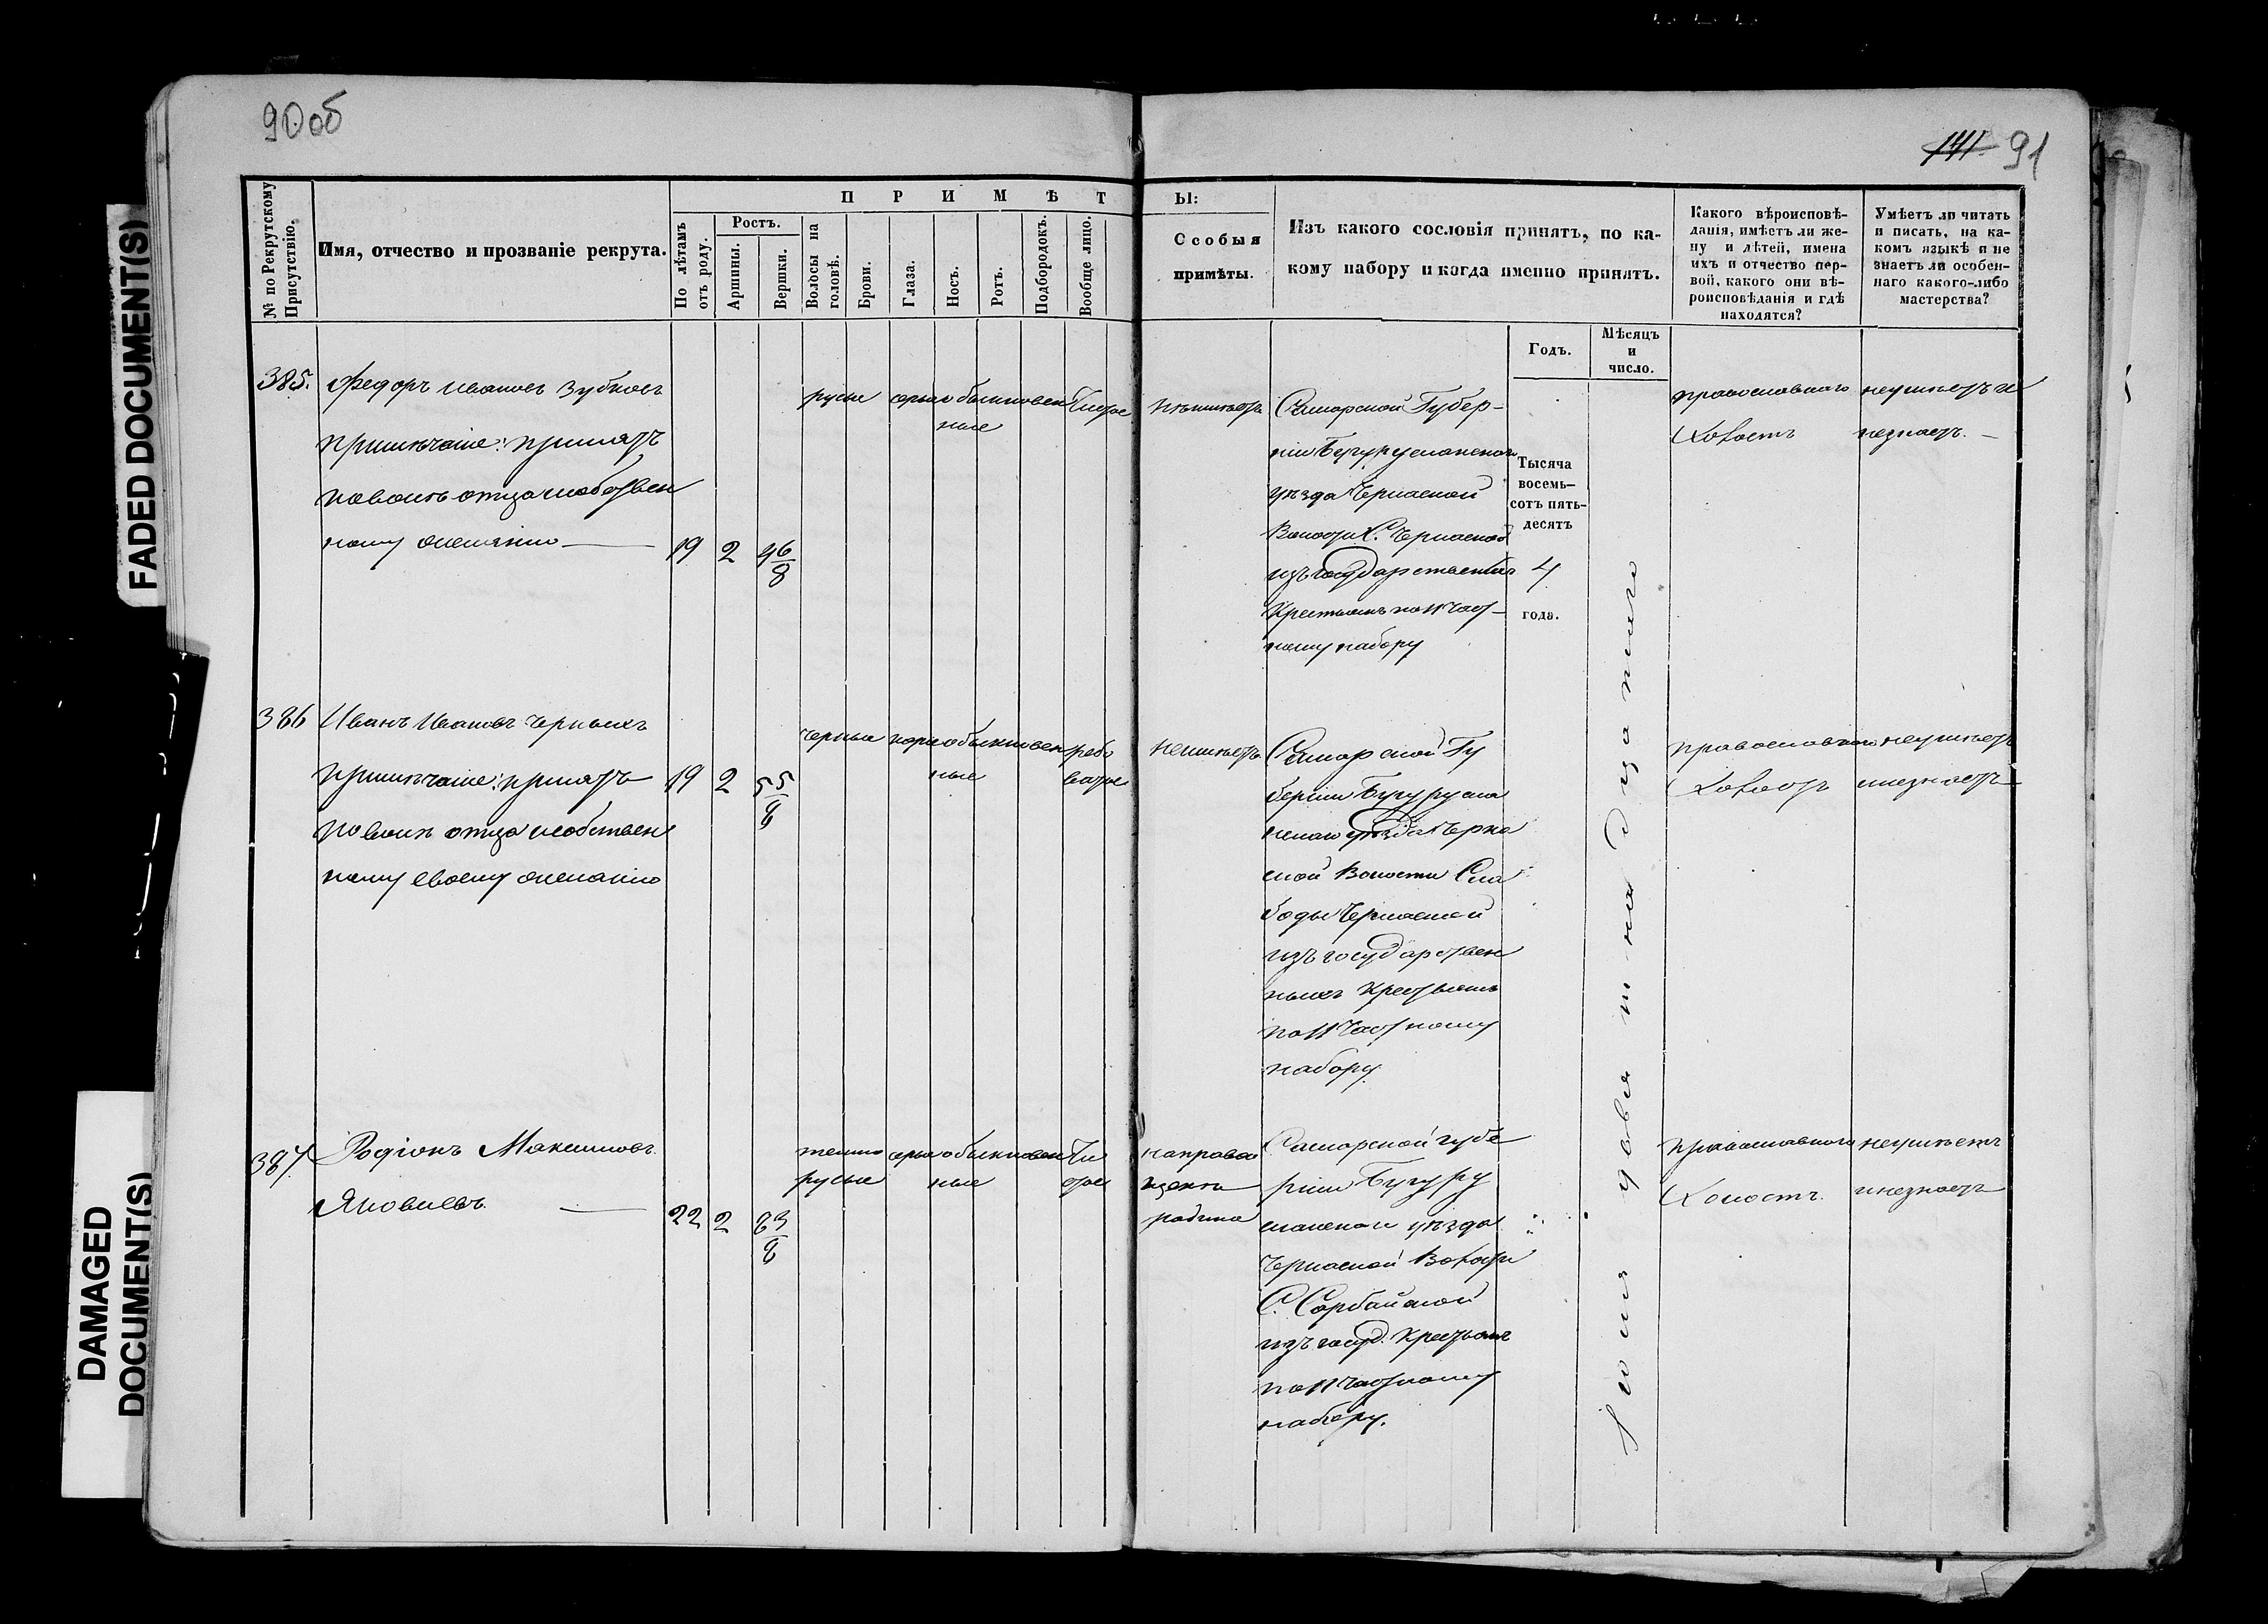 90 об
141 91
FADED DOCUMENT(S)
DAMAGED
DOCUMENT(S)
№ по Рекрутскому
Присутствію.
Имя, отчество и прозваніе рекрута.
П Р И М Ѣ Т
Ы:
По лѣтамъ
отъ роду.
Ростъ.
Аршины.
Вершки.
Волосы на
головѣ.
Брови.
Глаза.
Носъ.
Ротъ.
Подбородокъ.
Вообще лицо.
Особыя
примѣты.
Изъ какого сословія принятъ, по ка-
кому набору и когда именно принятъ.
Годъ.
Мѣсяцъ
и
число.
Какого вѣроисповѣ-
данія, имѣетъ ли же-
ну и дѣтей, имена
ихъ и отчество пер-
вой, какого они вѣ-
роисповѣданія и гдѣ
находятся?
Умѣетъ ли читать
и писать, на ка-
комъ языкѣ и не
знаетъ ли особен-
наго какого-либо
мастерства?
385.
Федоръ Ивановъ Зубковъ
примѣчаніе: принятъ
по волѣ отца и собствен
ному желанію
19 2 4 6/8
русые серые обыкновен чистое
ные
неимѣетъ
Самарской Губер-
ніи Бугурусланскаго
уѣзда Черкаской
Волости С. Черкаской
изъ государственныхъ
Крестьянъ по 11 част-
ному набору
Тысяча
восемь-
сотъ пять-
десятъ
4
года.
Іюля двадцатаго
православнаго
Холостъ
неумѣетъ и
незнаетъ. —
386
Иванъ Ивановъ Черныхъ
примѣчаніе: принятъ
по волѣ отца и собствен
ному своему желанію
19 2 5 5/8
черные каріе обыкновен рябо
ные ватое
неимѣетъ
Самарской Гу
берніи Бугурусла
нскаго уѣзда Черка
ской Волости Сла
боды Черкаской
изъ государствен
ныхъ Крестьянъ
по 11 частному
набору
православнаго
Холостъ
неумѣетъ
и незнаетъ
387.
Родіонъ Максимовъ
Яковлевъ.
22 2 6 3/8
темно серые обыкновен чи
русые ные стое
на правой
щекѣ
родина
Самарской губе
рніи Бугуру
сланскаго уѣзда
Черкаской Волости
С. Сарбайской
изъ госуд. Крестьянъ
по 11 частному
набору.
православнаго
Холостъ.
неумѣетъ
и незнаетъ